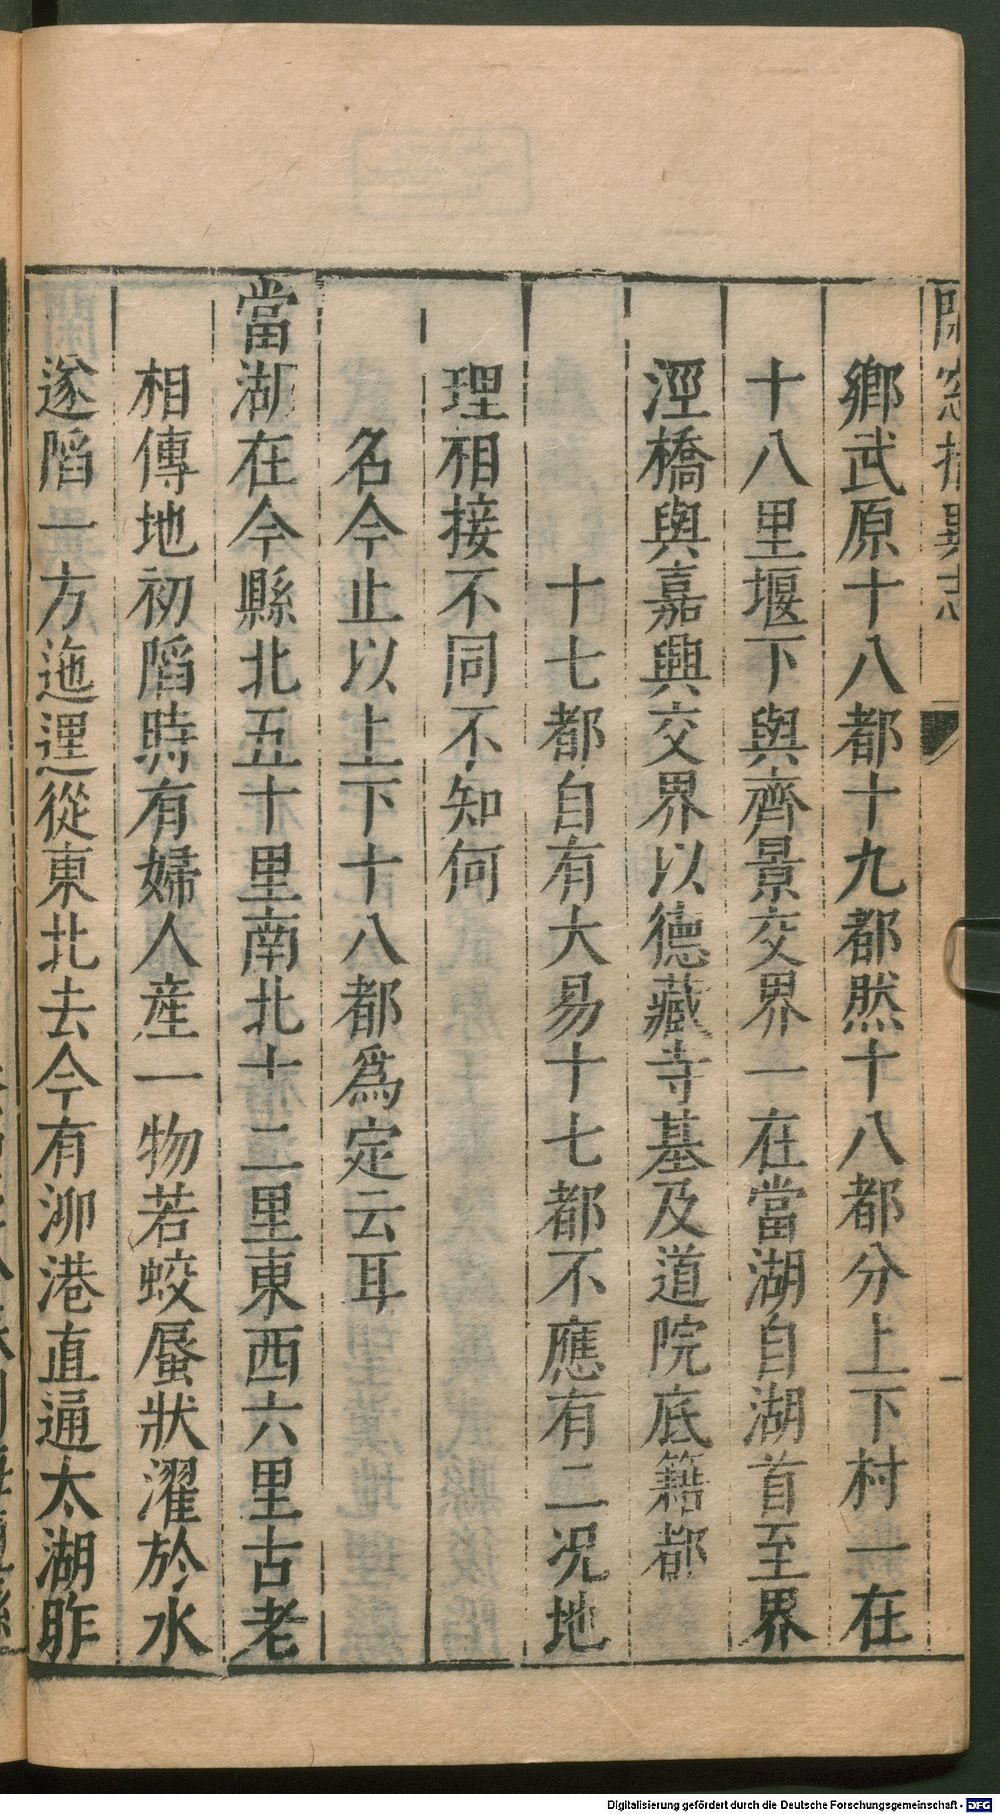 閒窓括異志
鄉武原十八都十九都然十八都分上下村一在
十八里堰下與齊景交界一在當湖自湖首至界
涇橋與嘉興交界以德藏寺基及道院底籍都
十七都自有大易十七都不應有二况地
理相接不同不知何
名今止以上下十八都爲定云耳
當湖在今縣北五十里南北十二里東西六里古老
相傳地初陷時有婦人産一物若蛟蜃狀濯於水
遂陷一方迤邐從東北去今有泖港直通太湖昨
Digitalisierung gefördert durch die Deutsche Forschungsgemeinschaft - DFG